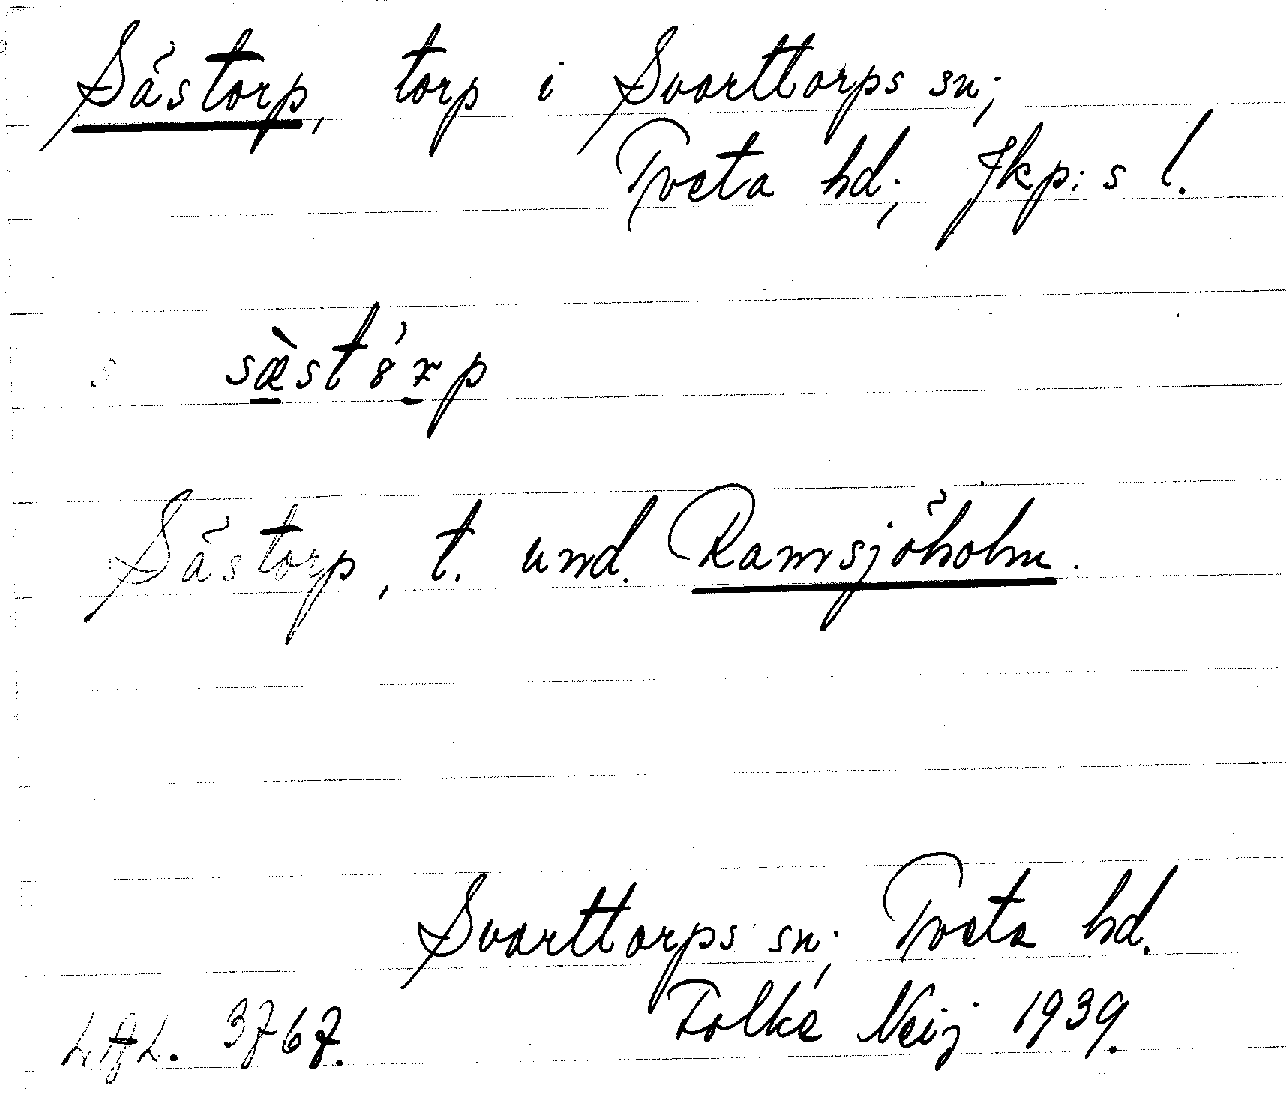 Såstorp, torp i Svarttorps sn;
Tveta hd; Jkp:s l.
sæ̀stó̤rp
Såstorp, t. und. Ramsjöholm.
Svarttorps sn; Tveta hd.
Folke Neij 1939.
LAL. 3767.